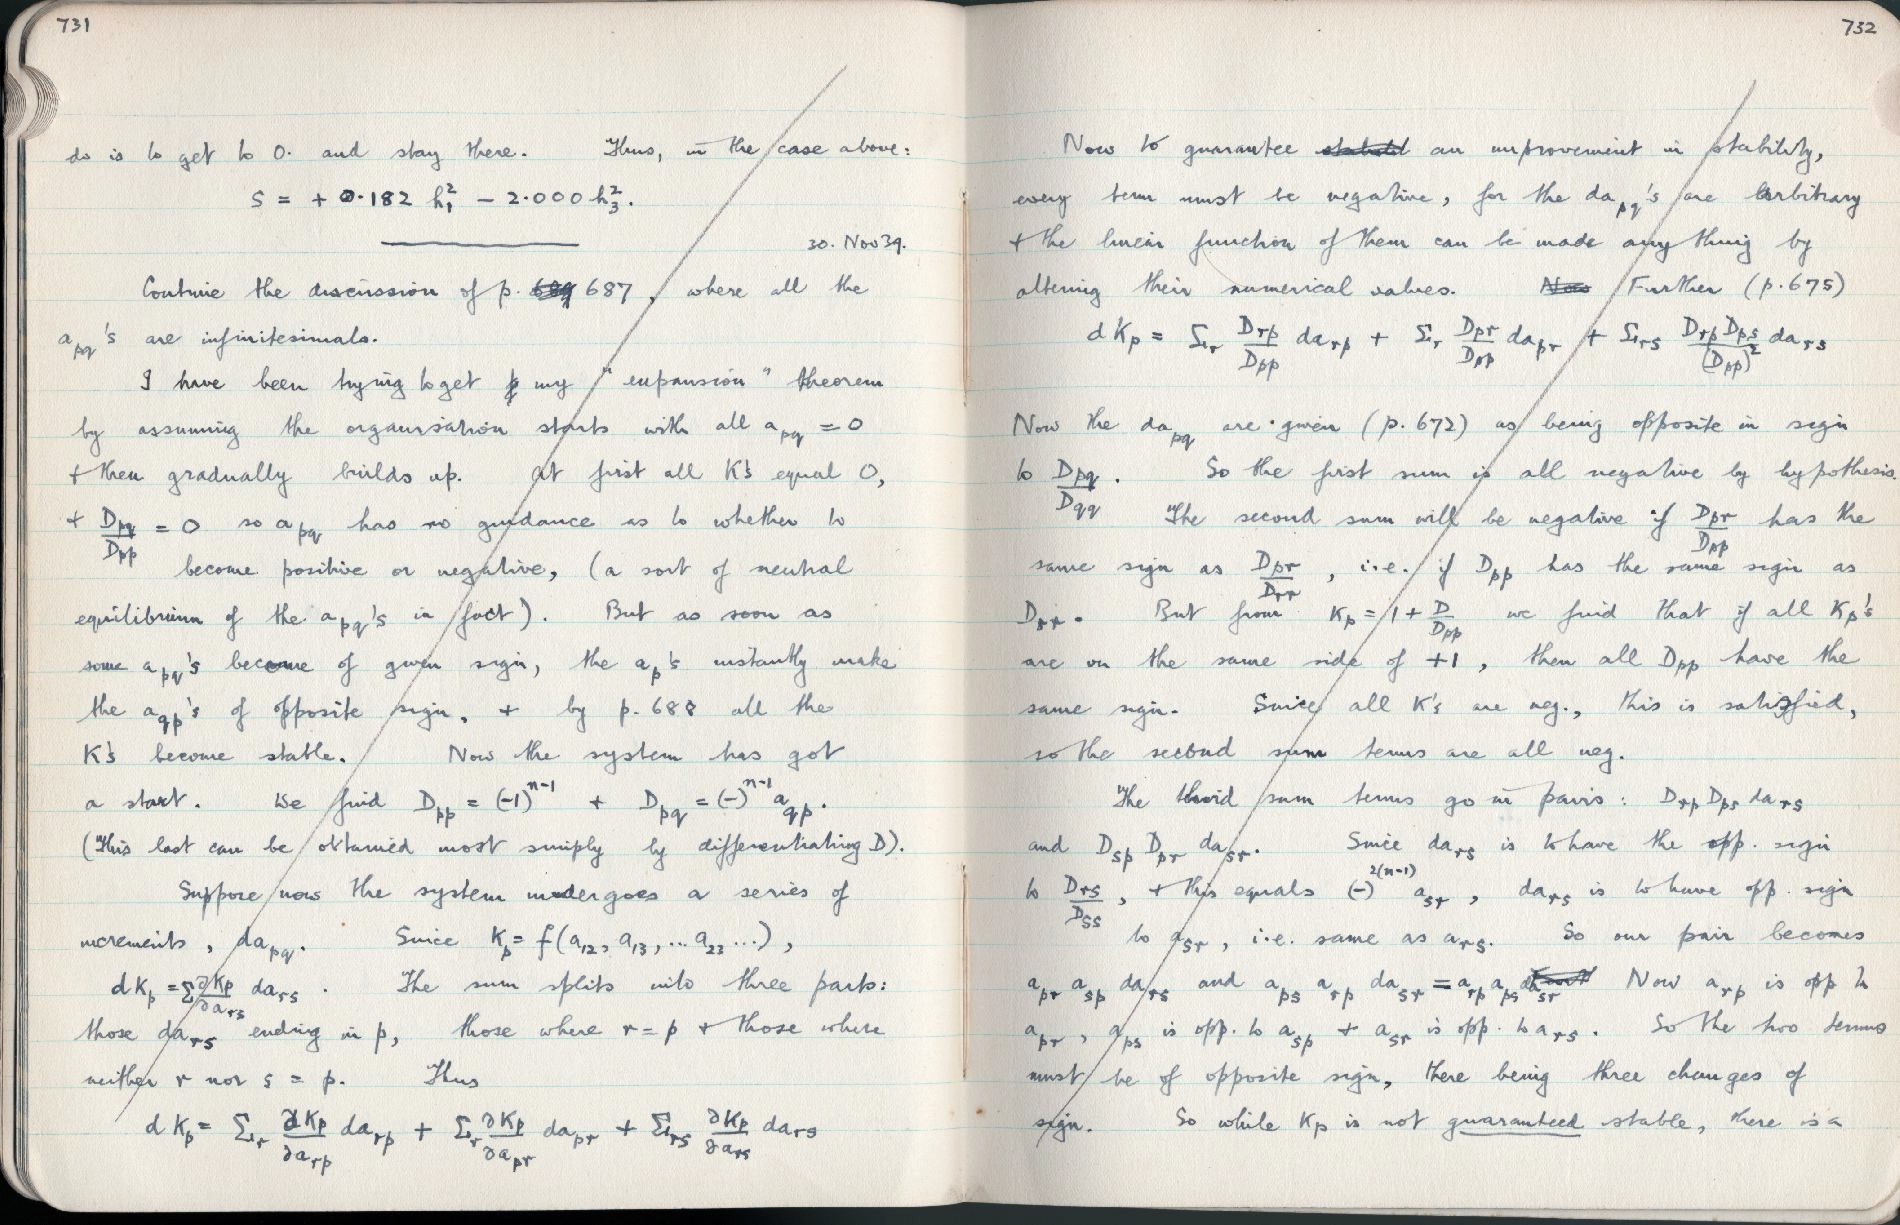 731
do is to get to 0. and stay there. Thus, in the case above:
S = + 0.182 h₁² − 2.000 h₃².
30. Nov 39.
Continue the discussion of p. 689 687, where all the
a_pq's are infinitesimals.
I have been trying to get my "expansion" theorem
by assuming the organisation starts with all a_pq = 0
+ then gradually builds up. At first all K's equal 0,
+ D_pq/D_pp = 0 so a_pq has no guidance as to whether to
become positive or negative, (a sort of neutral
equilibrium of the a_pq's in fact). But as soon as
some a_pq's become of given sign, the a_p's instantly make
the a_qp's of opposite sign, + by p. 688 all the
K's become stable. Now the system has got
a start. We find D_pp = (-1)^(n-1) + D_pq = (-)^(n-1) a_qp.
(This last can be obtained most simply by differentiating D).
Suppose now the system undergoes a series of
increments, da_pq. Since K_p = f(a₁₂, a₁₃, ... a₂₃ ...),
dK_p = Σ ∂K_p/∂a_rs da_rs. The sum splits into three parts:
those da_rs ending in p, those where r = p + those where
neither r nor s = p. Thus
dK_p = Σ_r ∂K_p/∂a_rp da_rp + Σ_r ∂K_p/∂a_pr da_pr + Σ_rs ∂K_p/∂a_rs da_rs
732
Now to guarantee an improvement in stability,
every term must be negative, for the da_pq's are arbitrary
+ the linear function of them can be made anything by
altering their numerical values. Now Further (p. 675)
dK_p = Σ_r D_rp/D_pp da_rp + Σ_r D_pr/D_pp da_pr + Σ_rs D_rp D_ps/(D_pp)² da_rs
Now the da_pq are given (p. 672) as being opposite in sign
to D_pq/D_qq. So the first sum is all negative by hypothesis.
The second sum will be negative if D_pr/D_pp has the
same sign as D_pr/D_rr, i.e. if D_pp has the same sign as
D_rr. But from K_p = 1 + D/D_pp we find that if all K_p's
are on the same side of +1, then all D_pp have the
same sign. Since all K's are neg., this is satisfied,
so the second sum terms are all neg.
The third sum terms go in pairs: D_rp D_ps da_rs
and D_sp D_pr da_sr. Since da_rs is to have the opp. sign
to D_rs/D_ss, + this equals (-)^2(n-1) a_sr, da_rs is to have opp. sign
to a_sr, i.e. same as a_rs. So our pair becomes
a_pr a_sp da_rs and a_ps a_rp da_sr = a_rp a_ps da_sr Now a_rp is opp to
a_pr, a_ps is opp. to a_sp + a_sr is opp. to a_rs. So the two terms
must be of opposite sign, there being three changes of
sign. So while K_p is not guaranteed stable, there is a